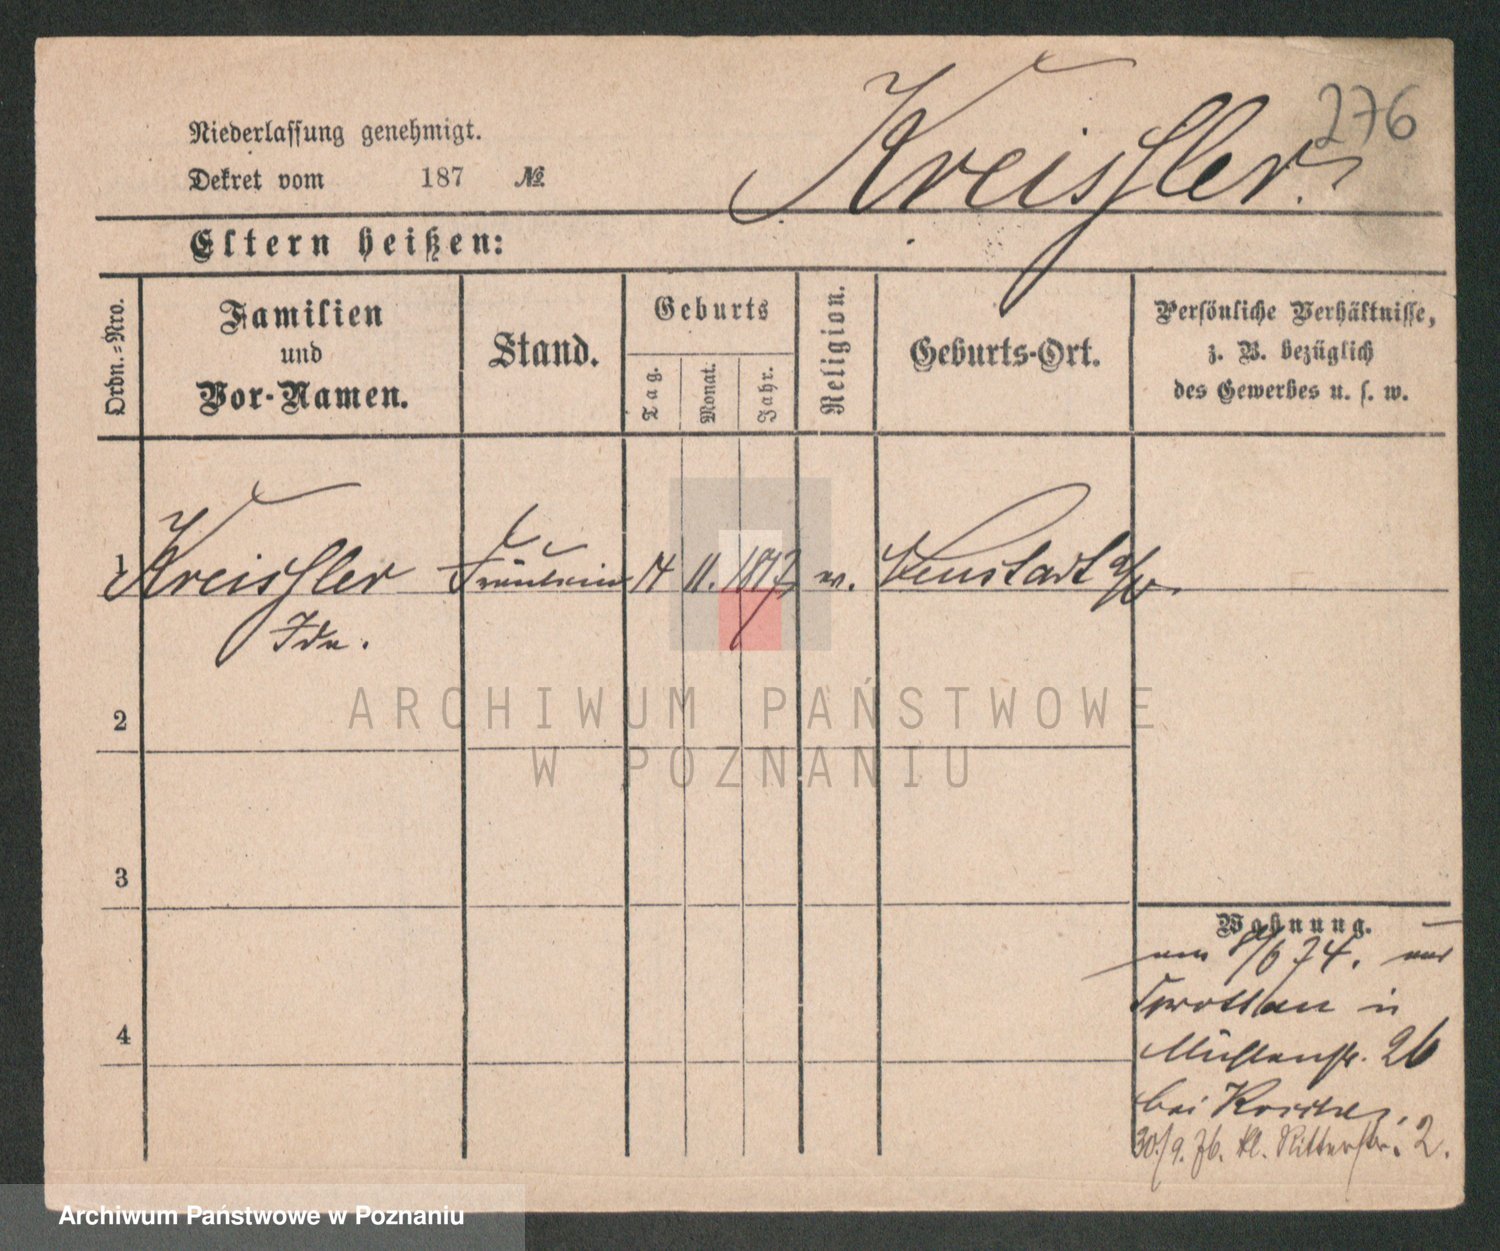 276
Kreissler.
Niederlassung genehmigt.
Dekret vom 187 №
Eltern heißen:
Ordn.=Nro.
Familien
und
Vor-Namen.
Stand.
Geburts
Tag.
Monat.
Jahr.
Religion.
Geburts-Ort.
Persönliche Verhältnisse,
z. B. bezüglich
des Gewerbes u. s. w.
1 Kreissler Fräulein 14 11. Neustadt
Ida.
ARCHIWUM PAŃSTWOWE
W POZNANIU
2
3
4
Wohnung.
/6 74. aus
Sprottau in
Mühlenstr. 26
bei
30./9. 76. kl. Ritterstr. 2.
Archiwum Państwowe w Poznaniu